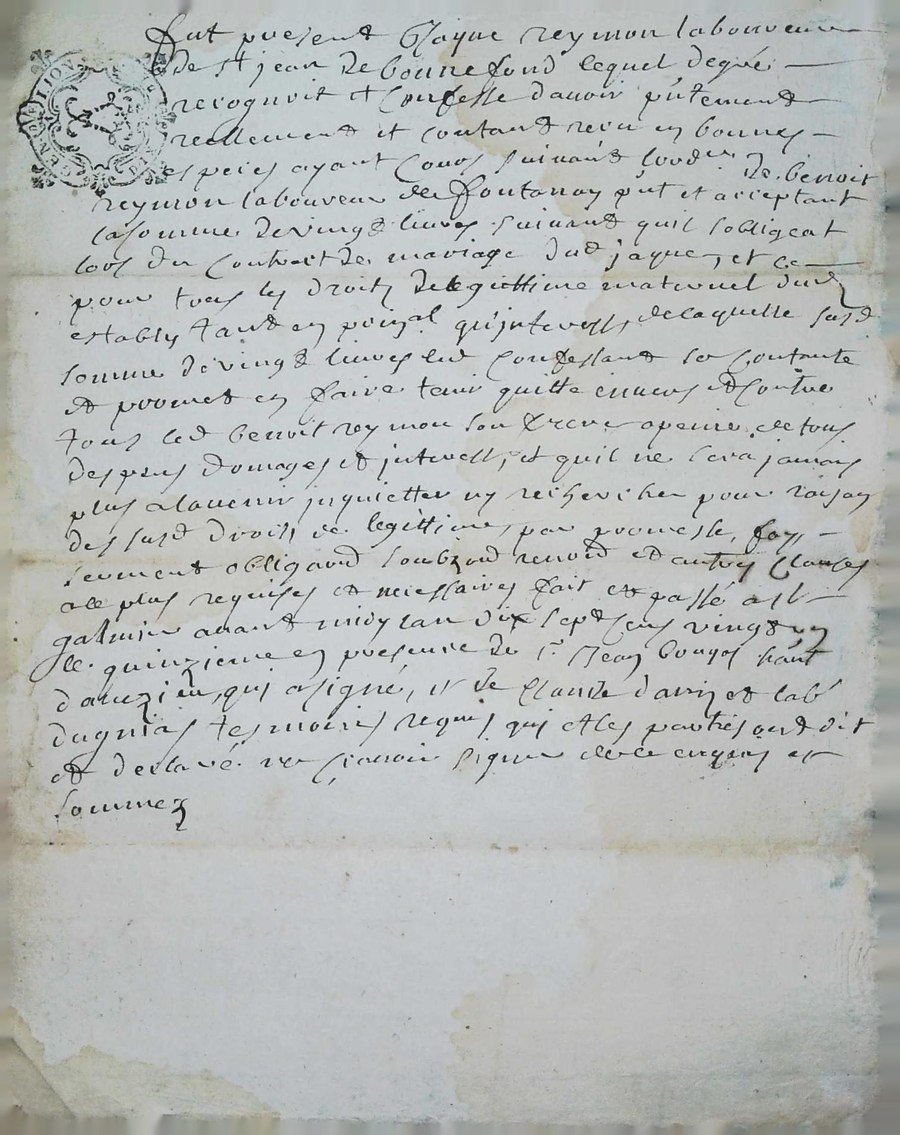 GEN DE LION
fut present Jaque reymon laboureur
de st jean de bonnefond lequel degré
recognoit et confesse davoir pntement
reellement et contant receu en bonnes
especes ayant cours suivant lord de benoit
reymon laboureur de fontanay pnt et acceptant
la somme de vingt livres suivant quil sobligeat
lors du contract de mariage dud jaque, et ce
pour tous les droits de legittime maternel dud
estably tant en poinpal qu'interests, de laquelle susd
somme de vingt livres led confessant se contante
et promet en faire tenir quitte envers et contre
tous led benoit reymon son frere a peine de tous
despens domages et interests, et quil ne sera jamais
plus a ladvenir inquietter ny rechercher pour raison
des susd droits de legittime, par promesse, foy,
serment obligaond soubzaond renond et autres clauses
a ce plus requises et necessaires fait et passé a st
galmier avant midy lan dix sept cens vingt un
le quinzieme en presence de sr Jean hant
qui a signé, et de claude et lab
tesmoins requis qui et les parties ont dit
et declaré ne scavoir signer de ce enquis et
sommez